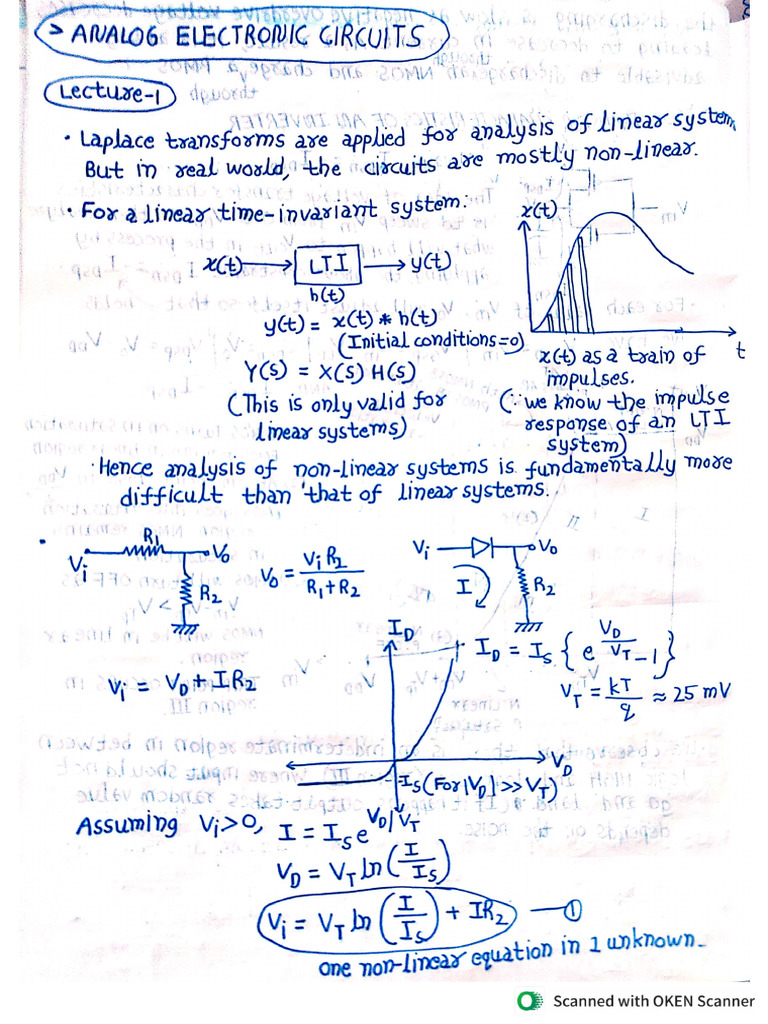 > ANALOG ELECTRONIC CIRCUITS
Lecture-1
• Laplace transforms are applied for analysis of linear system.
But in real world, the circuits are mostly non-linear.
• For a linear time-invariant system:
x(t)
x(t) → LTI → y(t)
h(t)
y(t) = x(t) * h(t)
(Initial conditions=0)
t
x(t) as a train of
impulses.
Y(s) = X(s) H(s)
(This is only valid for
linear systems)
(∵ we know the impulse
response of an LTI
system)
Hence analysis of non-linear systems is fundamentally more
difficult than that of linear systems.
• Vi R1 Vo
R2
Vo = ViR2 / (R1+R2)
Vi Vo
I R2
Vi = VD + IR2
ID
ID = Is { e^(VD/VT) -1 }
VT = kT/q ≈ 25 mV
VD
-Is (For |VD| >> VT)
Assuming Vi>0, I = Is e^(VD/VT)
VD = VT ln(I/Is)
Vi = VT ln(I/Is) + IR2 — ①
one non-linear equation in 1 unknown.
Scanned with OKEN Scanner